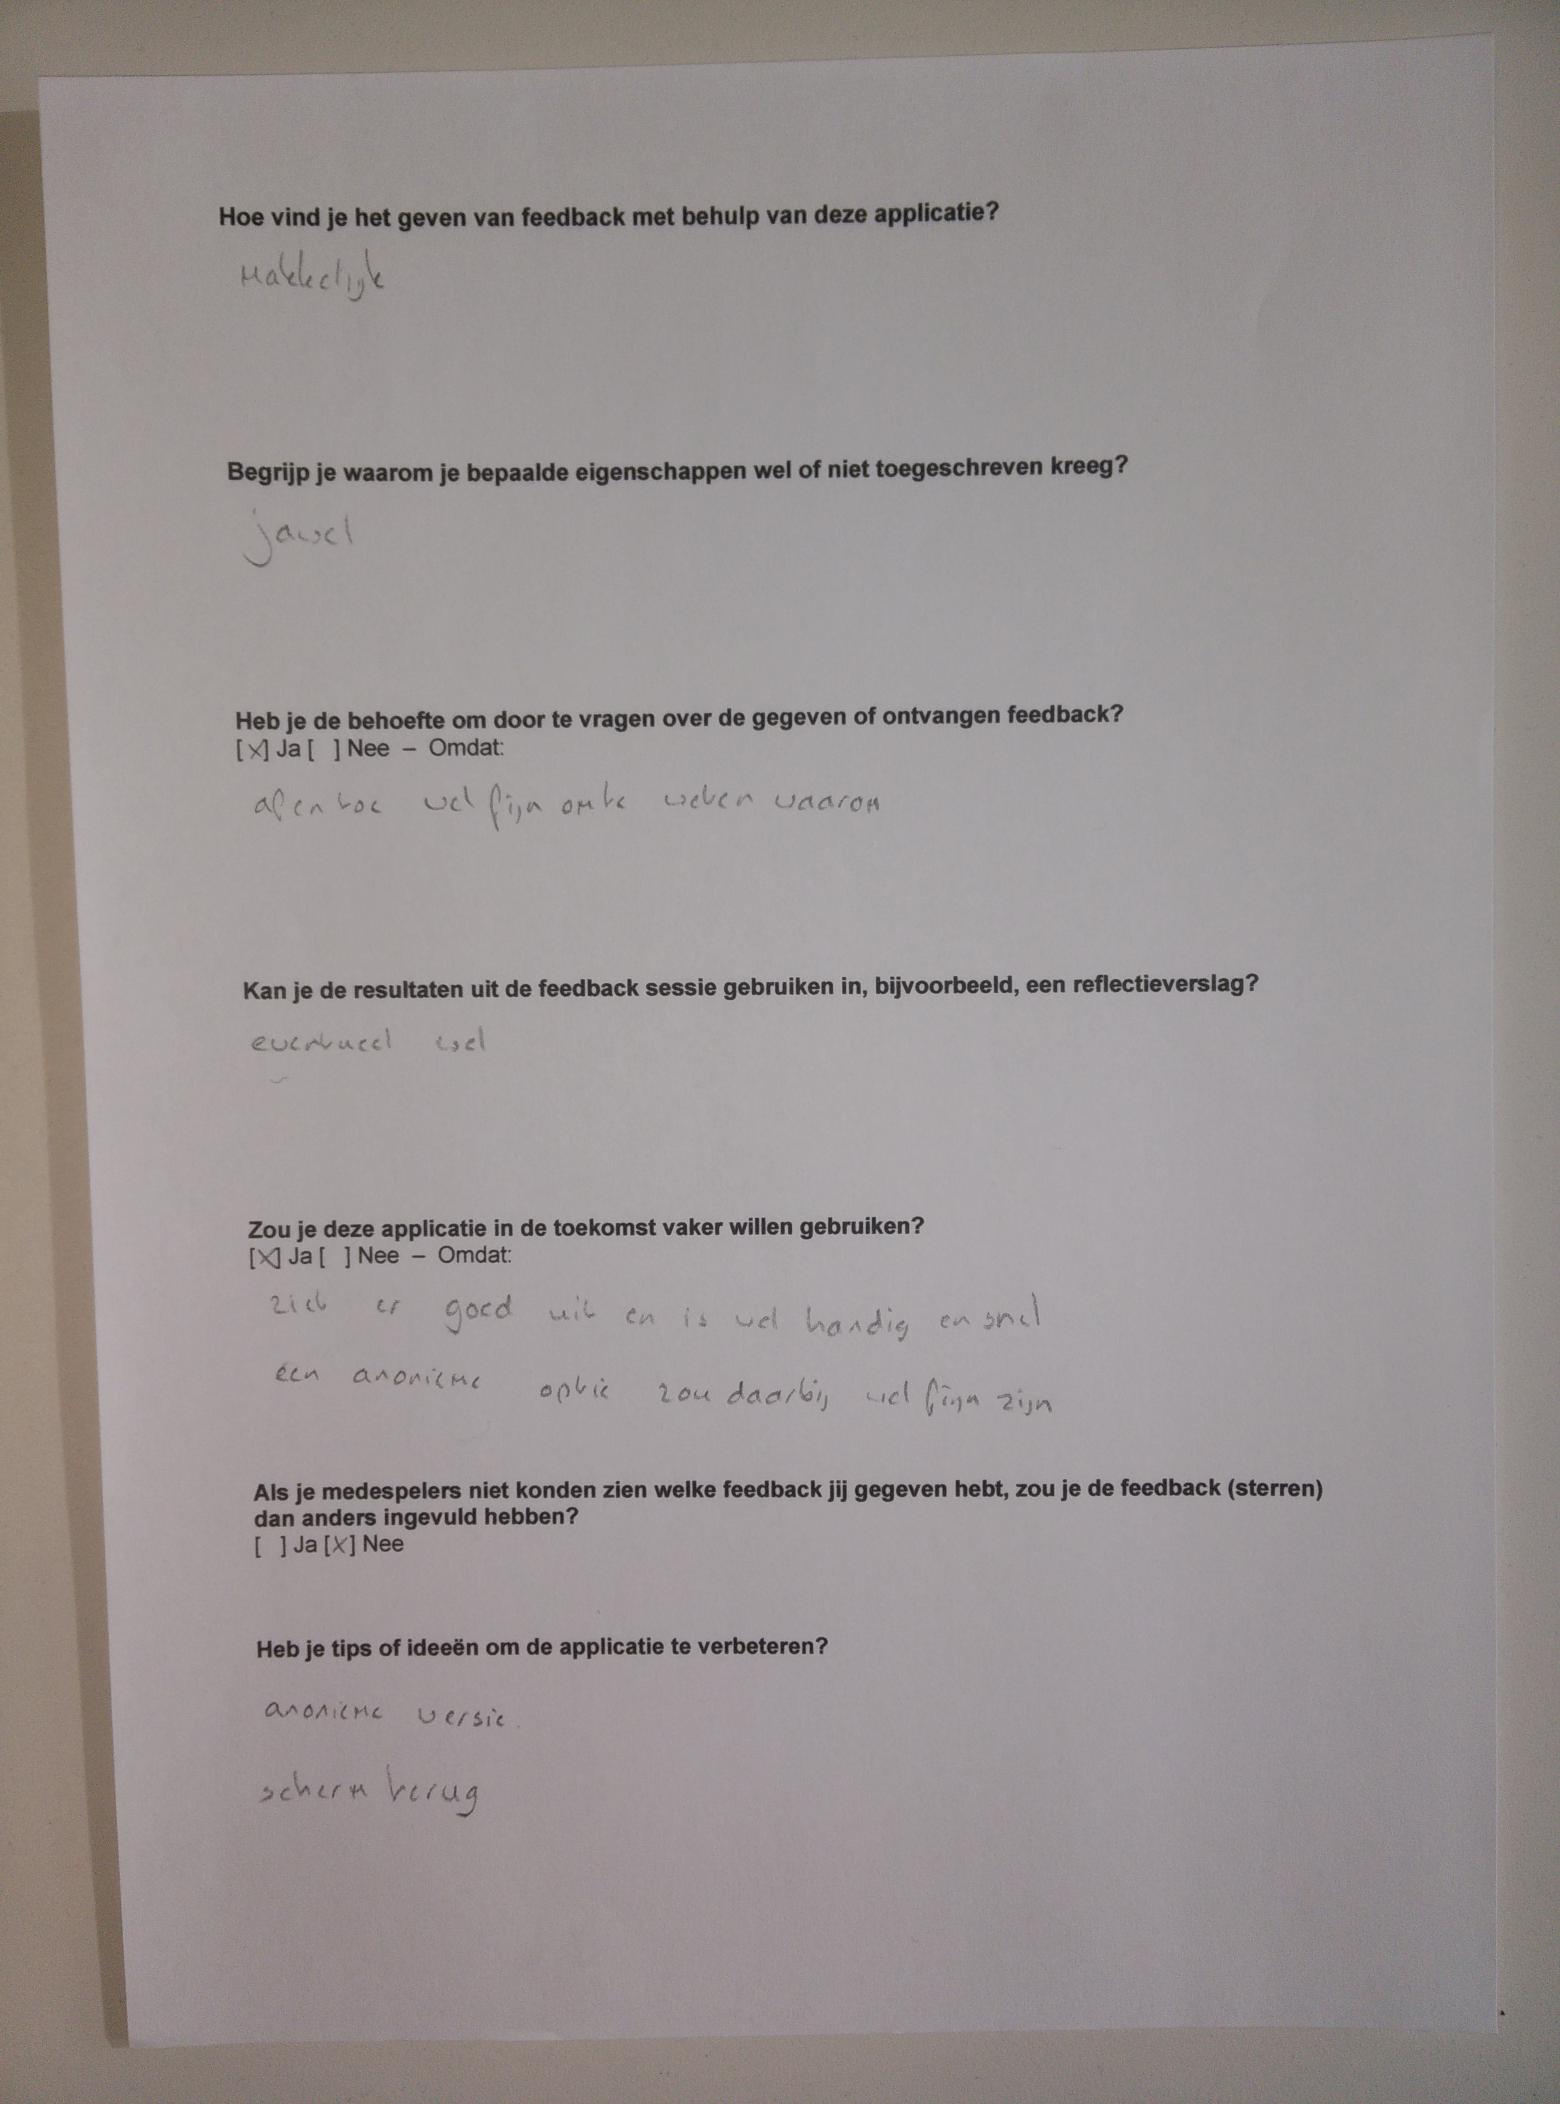 Hoe vind je het geven van feedback met behulp van deze applicatie?
Makkelijk
Begrijp je waarom je bepaalde eigenschappen wel of niet toegeschreven kreeg?
jawel
Heb je de behoefte om door te vragen over de gegeven of ontvangen feedback?
[X] Ja [ ] Nee – Omdat:
af en toe wel fijn om te weten waarom
Kan je de resultaten uit de feedback sessie gebruiken in, bijvoorbeeld, een reflectieverslag?
eventueel wel
Zou je deze applicatie in de toekomst vaker willen gebruiken?
[X] Ja [ ] Nee – Omdat:
ziet er goed uit en is wel handig en snel
een anonieme optie zou daarbij wel fijn zijn
Als je medespelers niet konden zien welke feedback jij gegeven hebt, zou je de feedback (sterren)
dan anders ingevuld hebben?
[ ] Ja [X] Nee
Heb je tips of ideeën om de applicatie te verbeteren?
anonieme versie.
scherm terug